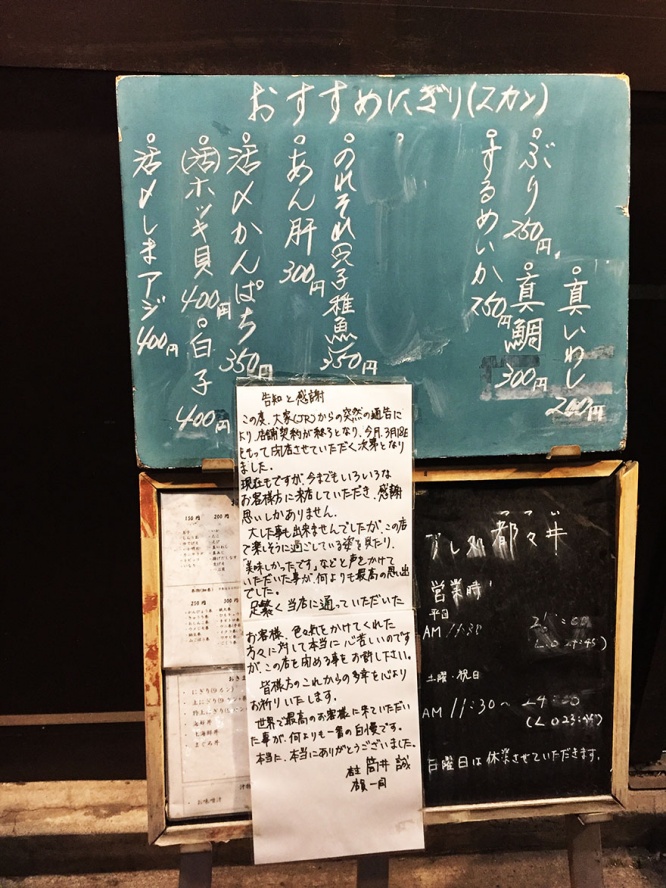 おすすめにぎり(2カン)
真いわし 200円
ぶり 250円
真鯛 300円
するめいか 250円
のれそれ(穴子稚魚) 350円
あん肝 300円
活〆かんぱち 350円
(活)ホッキ貝 400円
白子 400円
活〆しまアジ 400円
告知と感謝
この度、大家(JR)からの突然の通告に
より店舗契約が終了となり、今月、3月
をもって閉店させていただく次第となり
ました。
現在もですが、今までもいろいろな
お客様方に来店していただき、感謝
思いしかありません。
大した事も出来ませんでしたが、この店
で楽しそうに過ごしている姿を見たり、
「美味しかったです」などと声をかけて
いただいた事が、何よりも最高の思い出
でした。
足繁く当店に通っていただいた
お客様、色々気をかけてくれた
方々に対して本当に心苦しいのです
が、この店を閉める事をお許し下さい。
皆様方のこれからの多幸を心より
お祈りいたします。
世界で最高のお客様に来ていただい
た事が、何よりも一番の自慢です。
本当に、本当にありがとうございました。
店主 筒井 誠
店員一同
150円 200円
250円 300円
にぎり
上にぎり
特上にぎり
海鮮丼
七海鮮丼
まぐろ丼
お味噌汁
すし処 都々井
営業時
平日
AM 11:30
土曜・祝日
AM 11:30〜
(L.O 23:45)
日曜日は休業させていただきます。